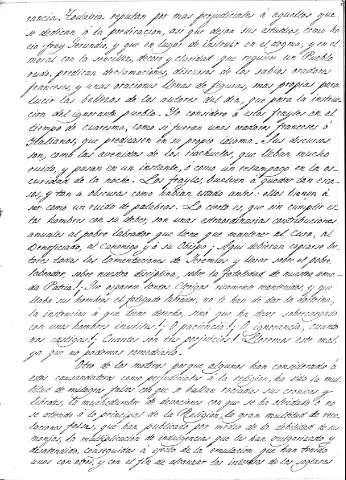 rancia. Todavia reputan por mas perjudiciales à aquellos que
se dedican à la predicacion, asi que dejan sus estudios, como ha
cia fray Gerundio, y que en lugar de instruir en el dogma, y en el
moral con la sencillez, decoro y claridad que requiere un Pueblo
rudo, predican declamaciones, discursos de los sabios oradores
franceses, y unas oraciones llenas de figuras, mas propias para
lucir las bellezas de los autores del dia, que para la instruc
cion del ignorante pueblo. Yo considero à estos frayles en el
tiempo de cuaresma, como se fueran unos oradores franceses ò
Italianos, que predicasen en su propio idioma. Sus discursos
son, como las avenidas de los que llevan mucho
ruido, y pasan en un instante, ò como un relampago en la os
curidad de la noche. Los
y tan à obscuras como habian estado antes: ellos vienen à
ser como un ruido de palabras. Lo cierto es, que sin cumplir es
tos hombres con su deber, son unas extraordinarias contribuciones
anuales al pobre labrador que tiene que mantener al Cura, al
Beneficiado, al Canonigo y à su Obispo; Aqui debieran copiarse to
dos todas las lamentaciones de Jeremias y llorar sobre el pobre
labrador, sobre nuestra disciplina, sobre la fatalidad de nuestra ama
da Patria!; En aparen tantos Clerigos
sus hombres el fatigado labrador, no te han de dar la doctrina,
la instencion à que tiene derecho, sino que ha
con unos hombres inutiles!; O paciencia!; O ignorancia, cuanto
nos castigas!; Cuantos son tus perjuicios! Lloremos este mal,
ya que no podemos remediarlo.
Otro de los motivos porque algunos han considerado à
estos como perjudiciales à la religion, ha sido la mul
titud de milagros falsos con que se hallan sus cronicas y
libretos, la muchedumbre de devociones con que se ha ò no
se atiende à lo principal de la Religion, la gran multitud de reve
laciones falsas, que han publicado por medio de la debilidad de sus
monjas, la multiplicacion de indulgencias que las han vulgarizado y
conseguidas à efecto de la emulacion que han tenido
unos con otros, y con el fin de alcanzar los de los seglares